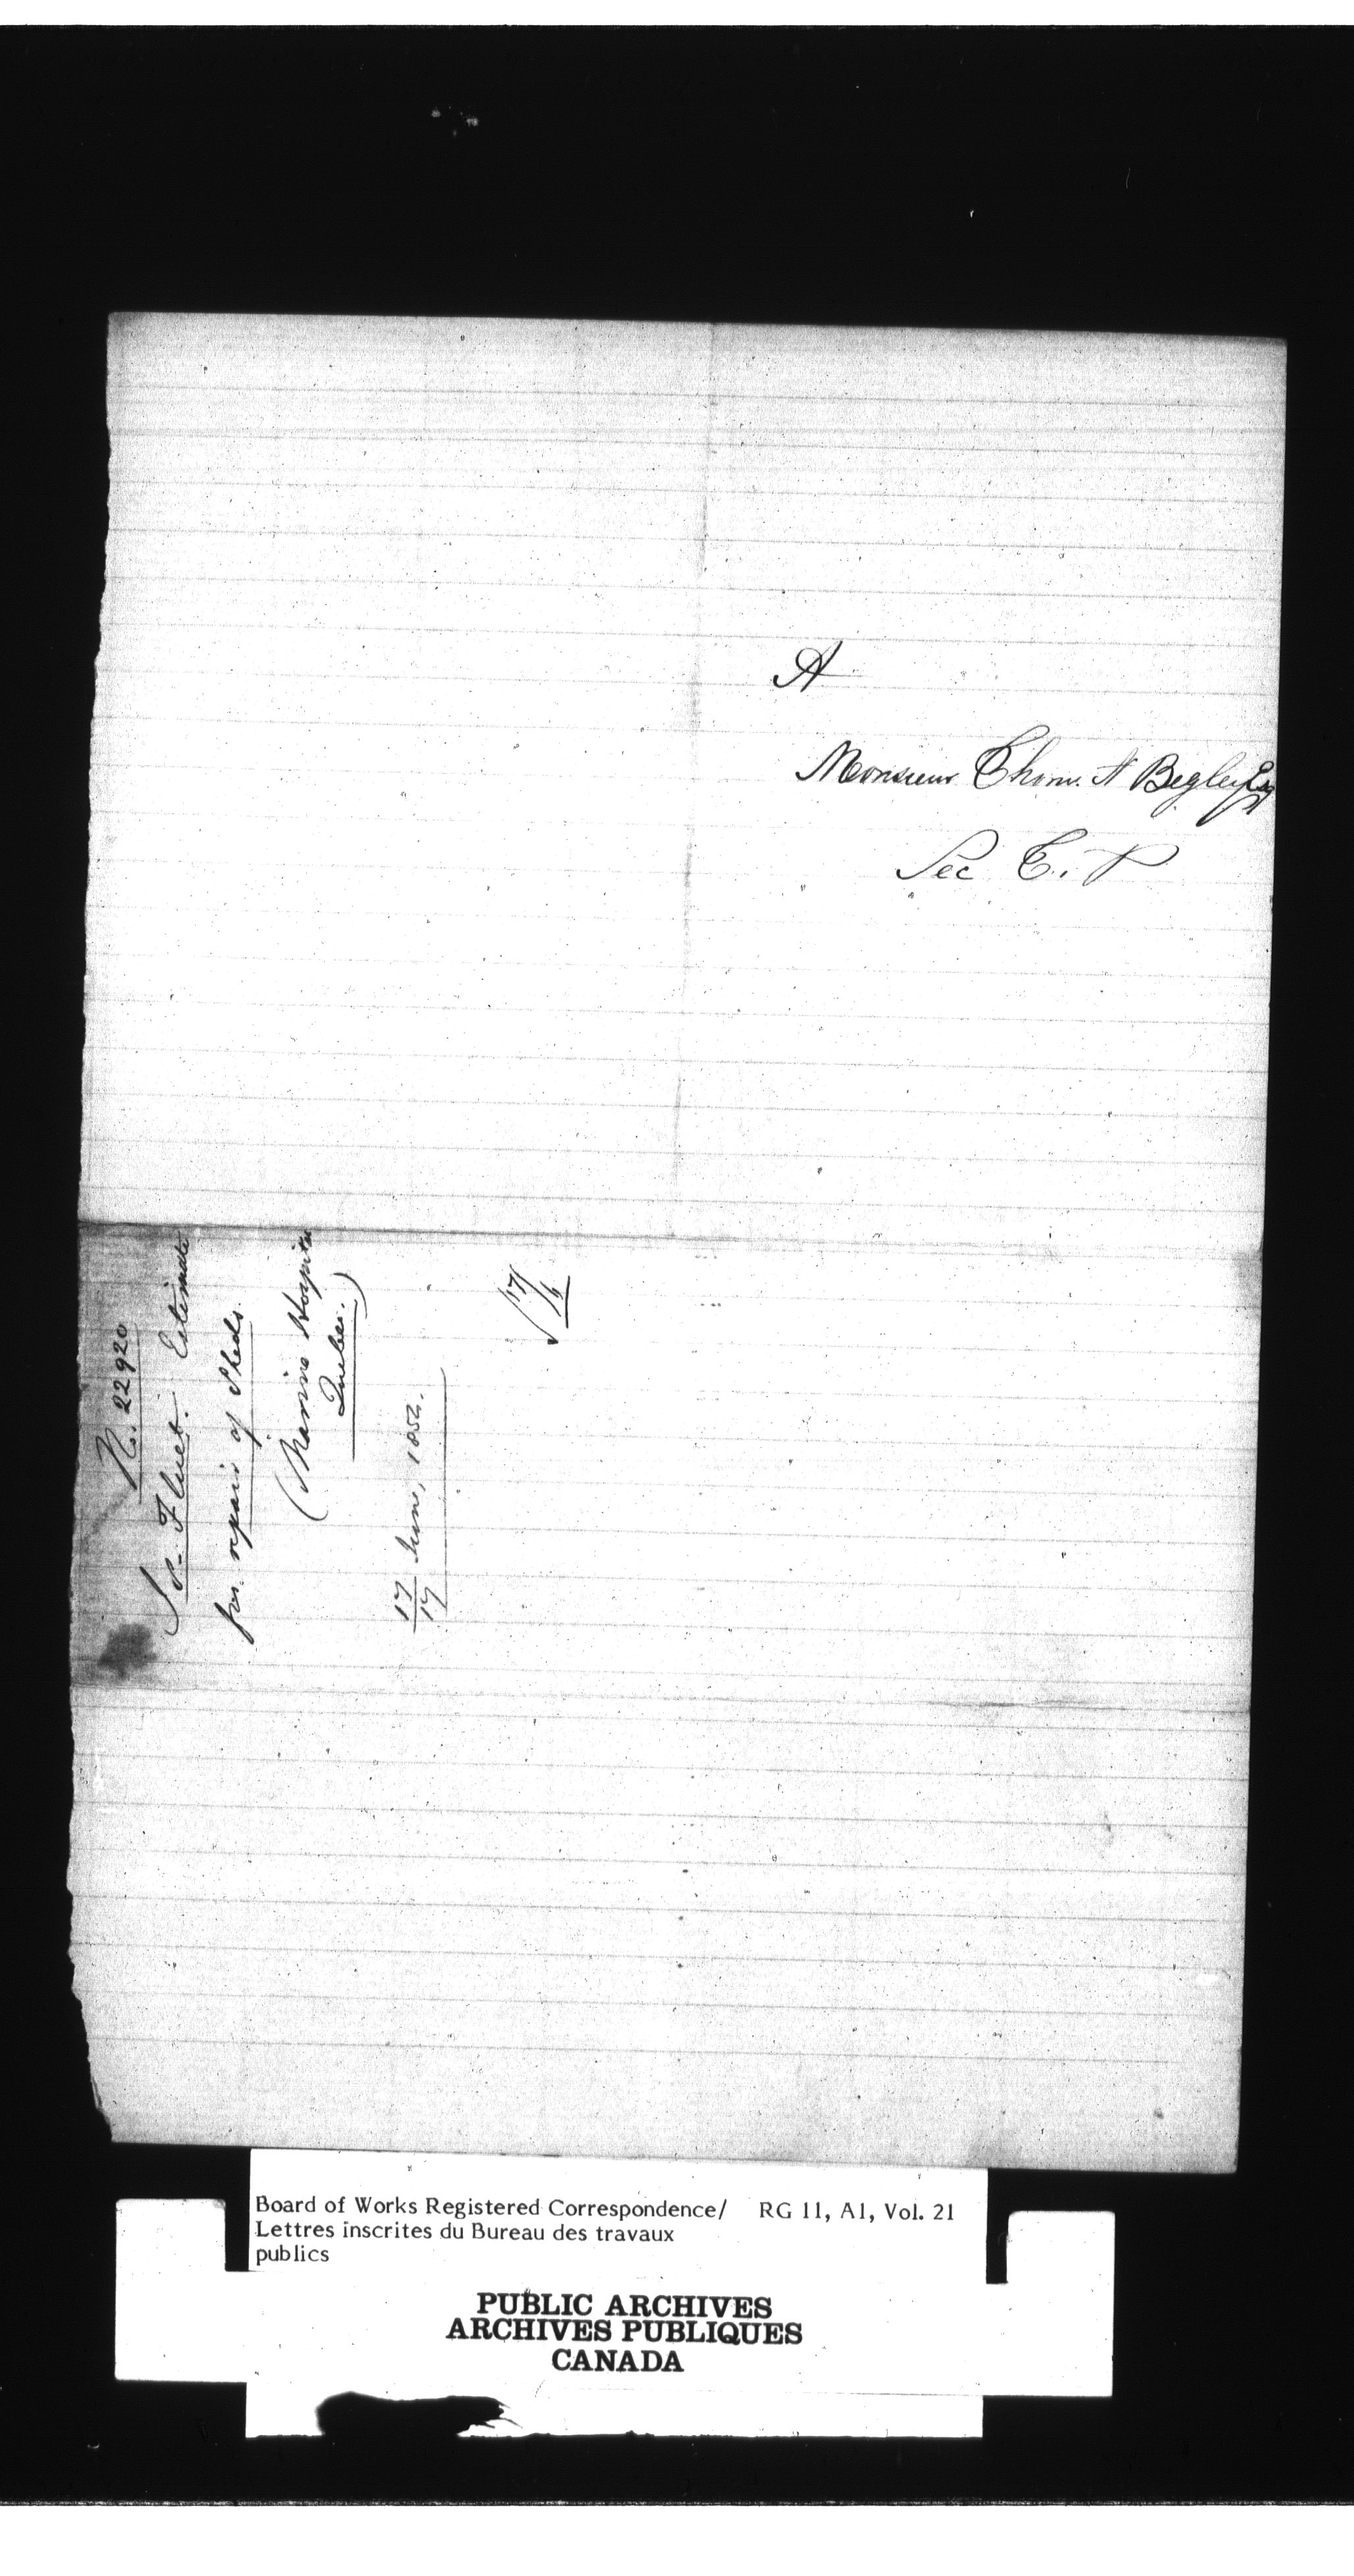 A
Monsieur Thom. A Begley Esq
Sec T. P
N. 22920
Fluet. Estimate
for repair of Sheds.
(Marine Hospital
Quebec.)
17 June, 1852.
17
17/6
Board of Works Registered Correspondence/ RG 11, A1, Vol. 21
Lettres inscrites du Bureau des travaux
publics
PUBLIC ARCHIVES
ARCHIVES PUBLIQUES
CANADA